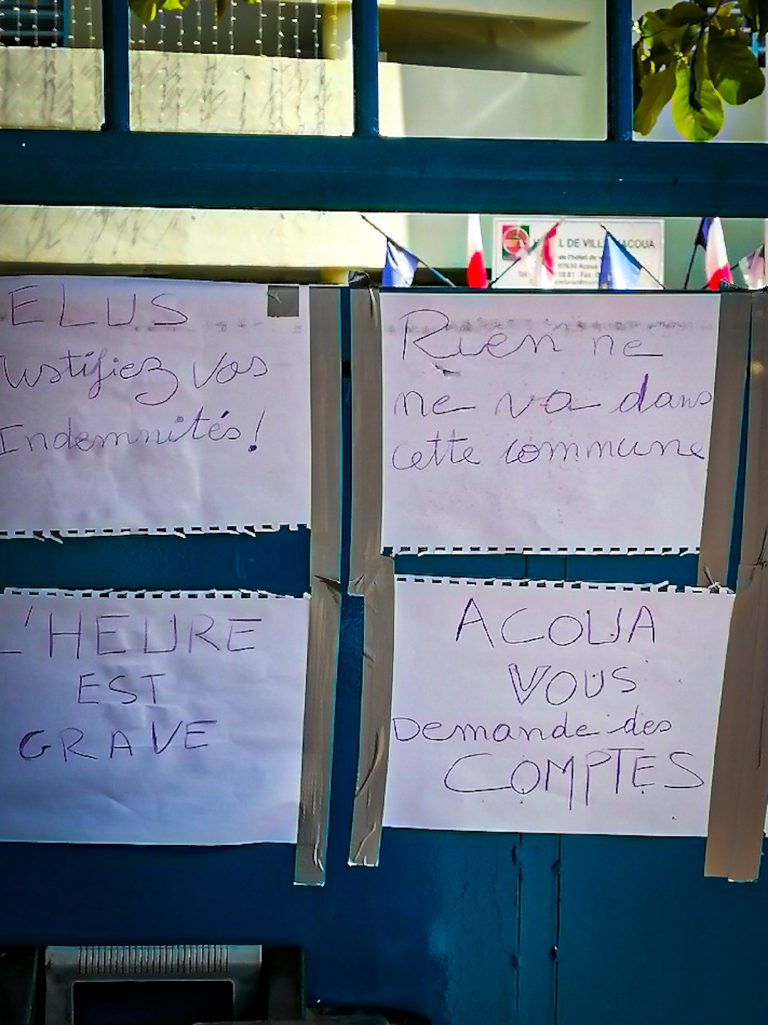 L DE VILL ACOUA
de l'hôtel de v
97630 Acoua
ELUS
Justifiez vos
Indemnités!
Rien ne
ne va dans
cette commune
L'HEURE
EST
GRAVE
ACOUA
VOUS
Demande des
COMPTES